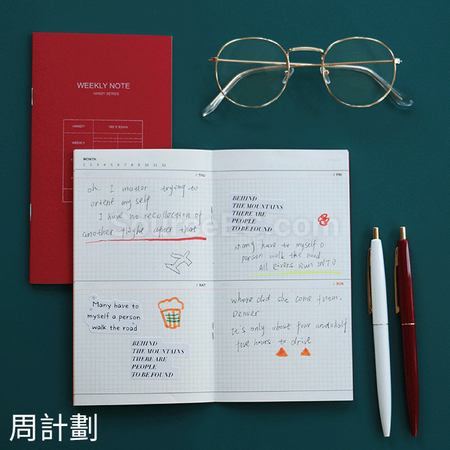 WEEKLY NOTE
HANDY SERIES
MONTH
1 2 3 4 5 6 7 8 9 10 11 12
THU
oh I matter trying to
orient my self
I have no recollection of
another flight after that
FRI
BEHIND
THE MOUNTAINS
THERE ARE
PEOPLE
TO BE FOUND
Many have to myself a
person walk the road
All Rivers Run INTO
SAT
Many have to
myself a person
walk the road
BEHIND
THE MOUNTAINS
THERE ARE
PEOPLE
TO BE FOUND
SUN
where did she come from.
Denver
It's only about four and half
five hours to drive
周計劃